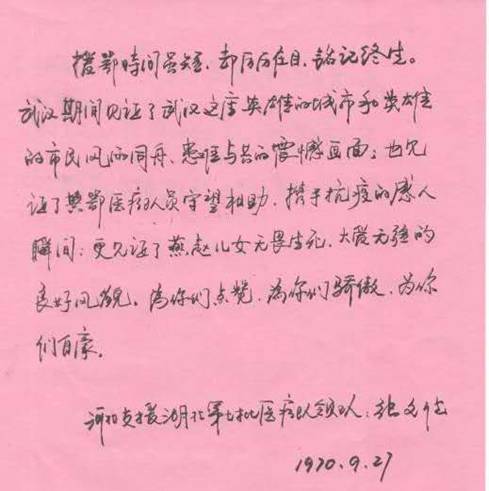 援鄂时间虽短、却历历在目、铭记终生。
武汉期间见证了武汉这座英雄的城市和英雄
的市民风雨同舟、患难与共的震憾画面；也见
证了冀鄂医疗队员守望相助、携手抗疫的感人
瞬间；更见证了燕赵儿女无畏生死、大爱无疆的
良好风貌。为你们点赞、为你们骄傲、为你
们自豪。
河北支援湖北第七批医疗队领队：张文
1970.9.27